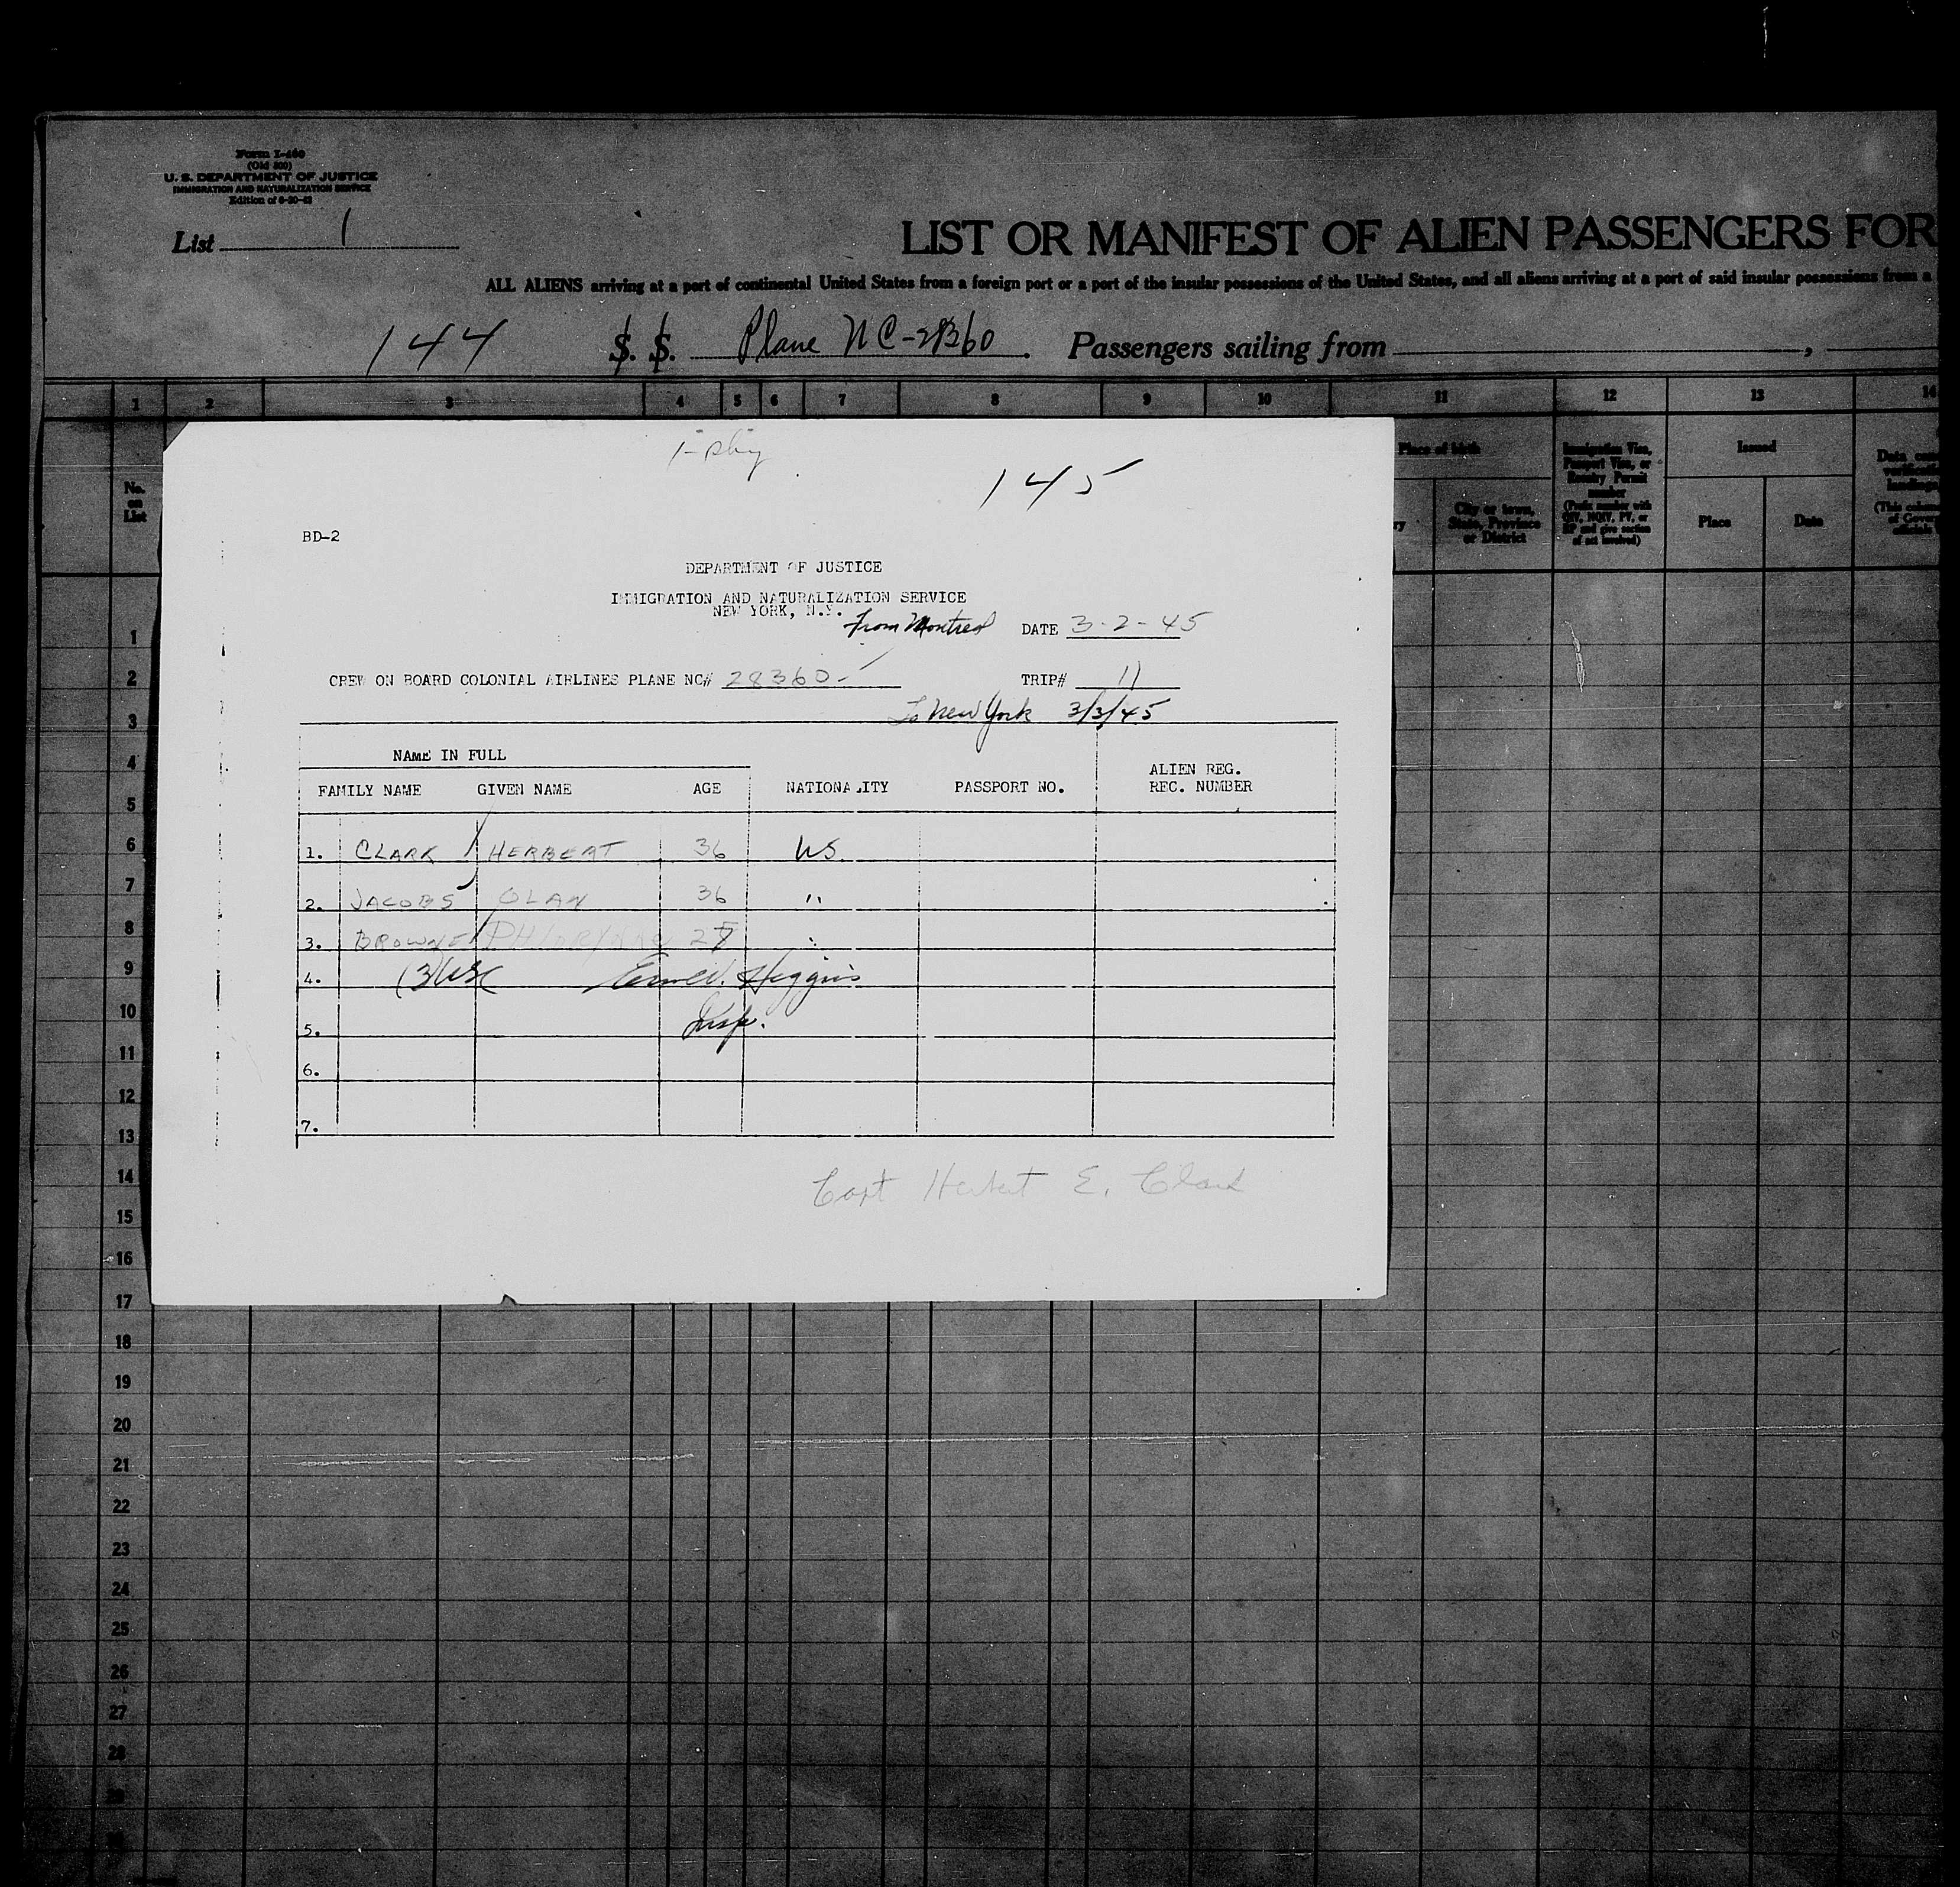 Form I-460
(Old 500)
U. S. DEPARTMENT OF JUSTICE
IMMIGRATION AND NATURALIZATION SERVICE
List 1
LIST OR MANIFEST OF ALIEN PASSENGERS FOR
ALL ALIENS arriving at a port of continental United States from a foreign port or a port of the insular possessions of the United States, and all aliens arriving at a port of said insular possessions from a
144 S. S. Plane NC-28360. Passengers sailing from
1 2 3 4 5 6 7 8 9 10 11 12 13 14
No. on List
Place of birth
City or town, State, Province or District
Immigration Visa, Passport Visa, or Reentry Permit number
(Prefix number with QIV, NQIV, PV, or RP and give section of act involved)
Issued
Place Date
145
BD-2
DEPARTMENT OF JUSTICE
IMMIGRATION AND NATURALIZATION SERVICE
NEW YORK, N.Y.
From Montreal DATE 3-2-45
CREW ON BOARD COLONIAL AIRLINES PLANE NC# 28360 TRIP# 11
To New York 3/3/45
NAME IN FULL
FAMILY NAME GIVEN NAME AGE NATIONALITY PASSPORT NO. ALIEN REG. REC. NUMBER
1. CLARK HERBERT 36 US.
2. JACOBS OLAN 36 "
3. BROWNE 28 "
4. (3) USC Higgins
5. Insp.
6.
7.
Capt Herbert E. Clark
1
2
3
4
5
6
7
8
9
10
11
12
13
14
15
16
17
18
19
20
21
22
23
24
25
26
27
28